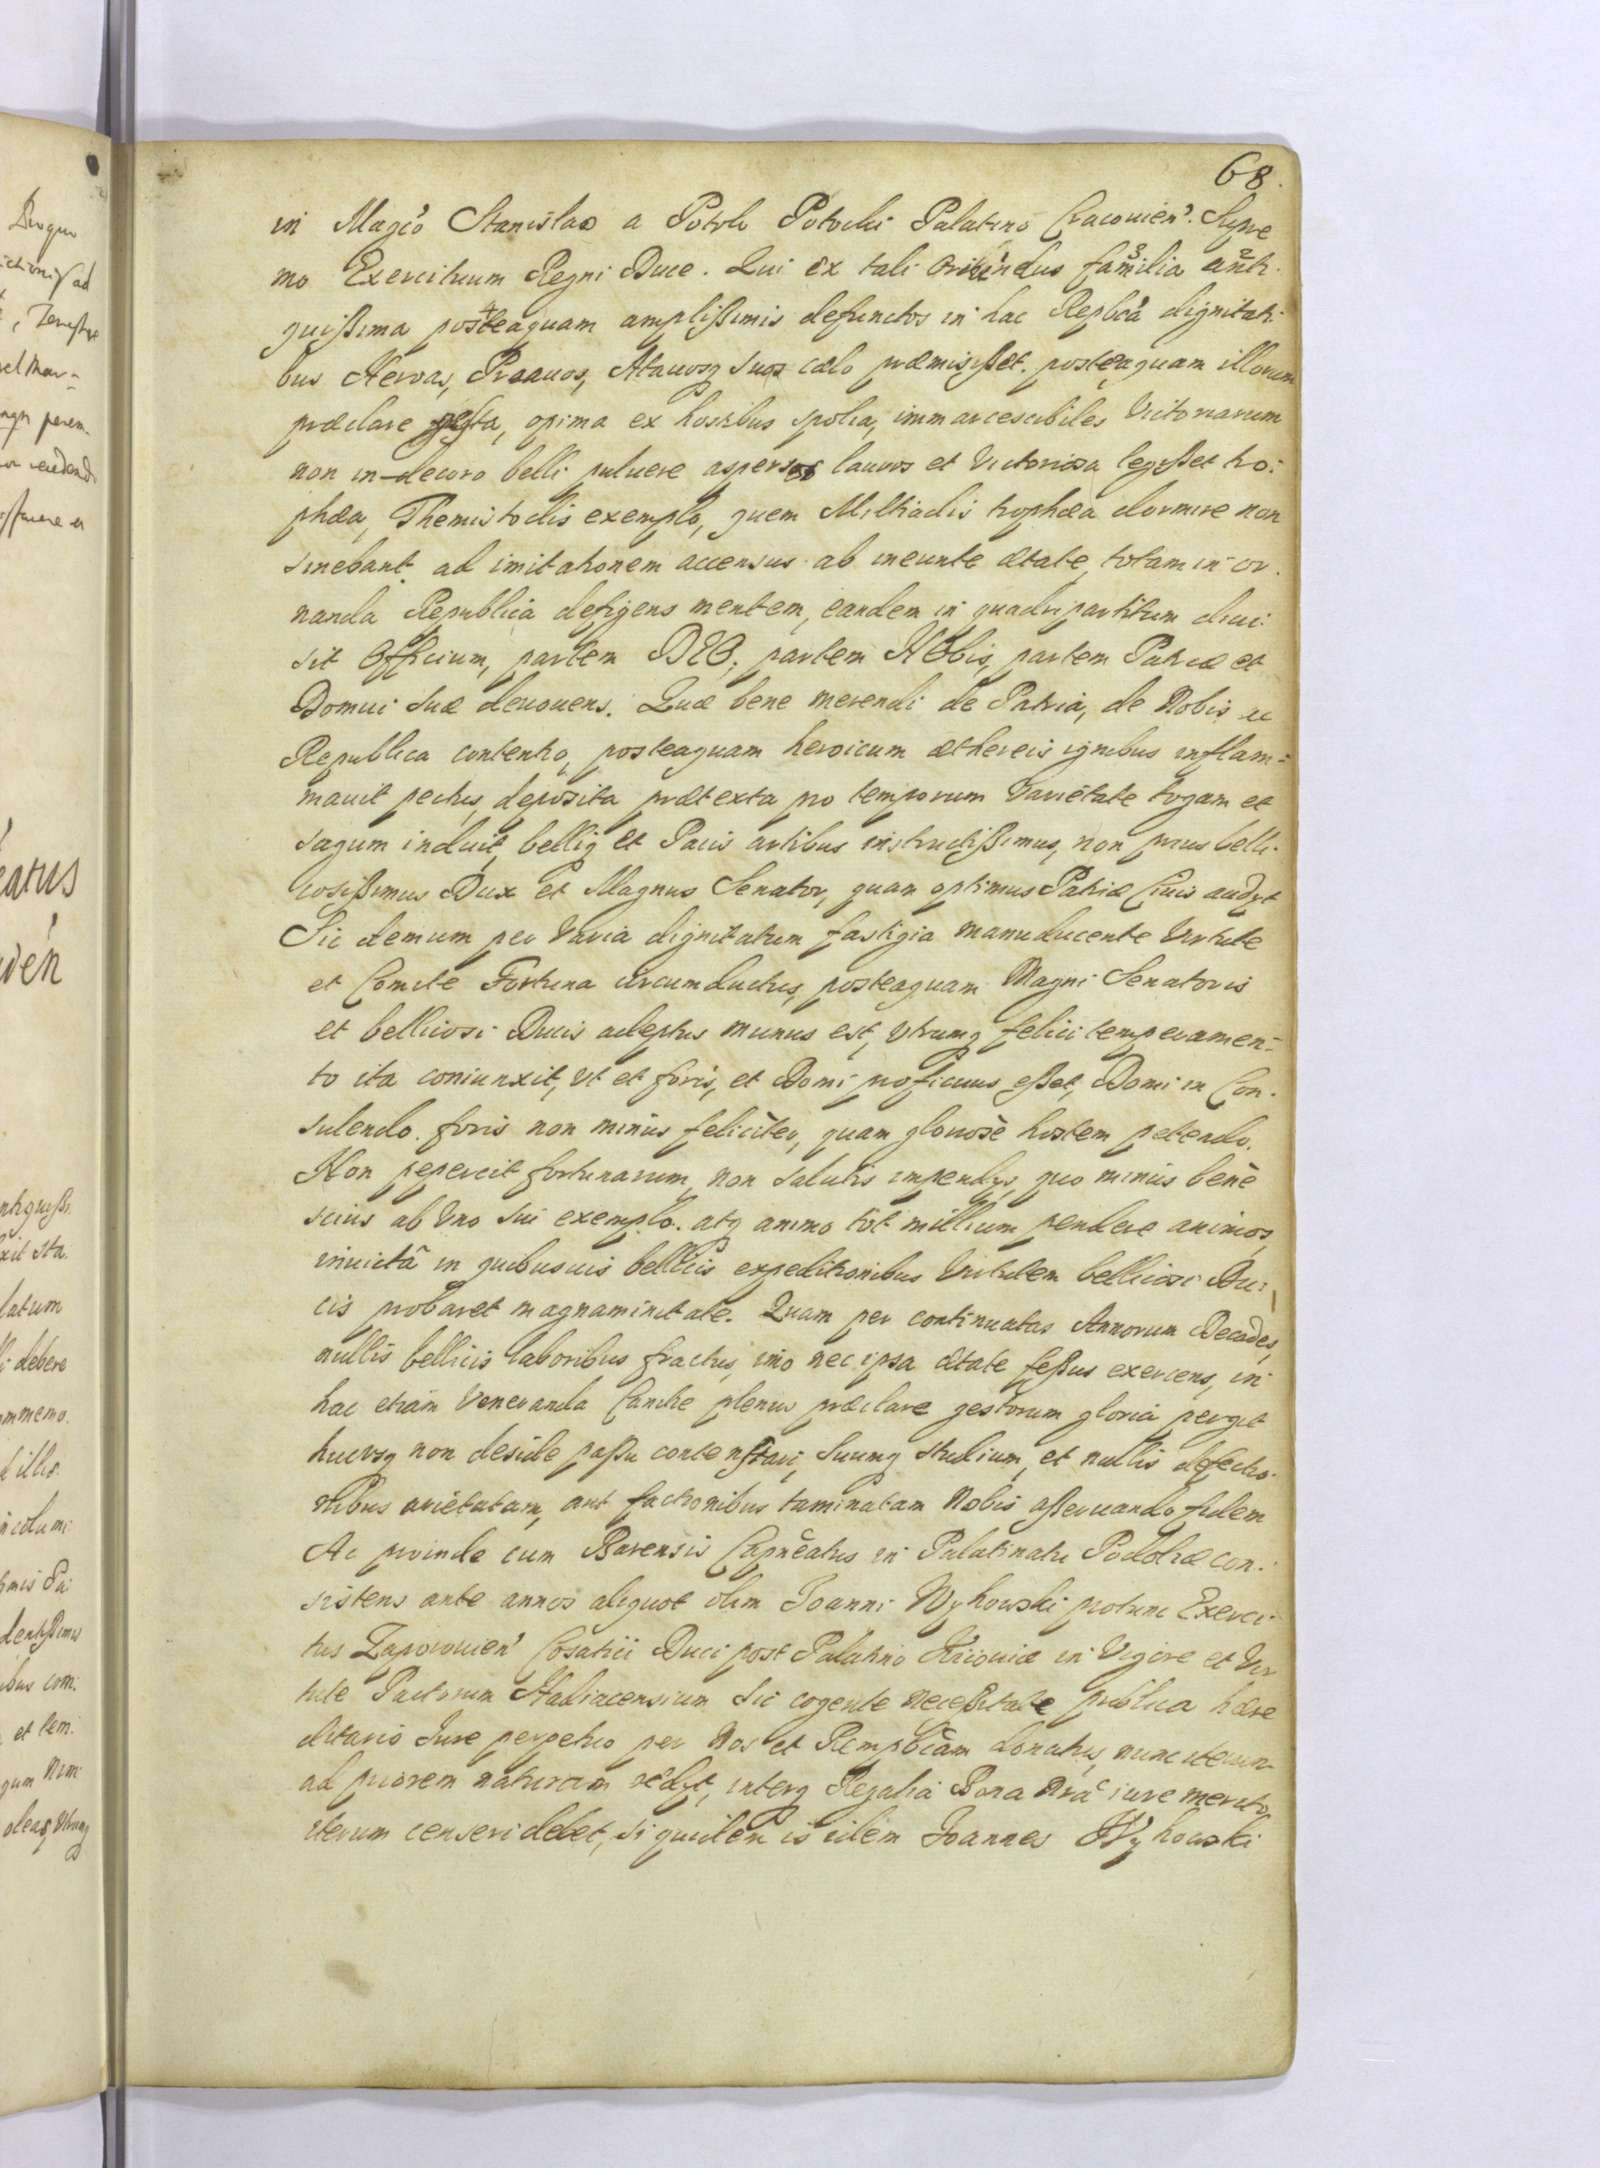 68.
in Magco Stanislao a Potok Potocki Palatino Cracovien. Supre
mo Exercituum Regni Duce. Qui ex tali oriundus familia anti-
quißima posteaquam amplißimis defunctos in hac Repbca dignitati-
bus Heroas, Proavos, Atavosq suos cælo præmisißet. posteaquam illorum
præclare gesta, opima ex hostibus spolia, immarcescibiles Victoriarum
non in-decoro belli puluere aspersos lauros et Victoriosa legißet tro-
phæa, Themistoclis exemplo, quem Miltiadis trophæa dormire non
sinebant. ad imitationem accensus ab ineunte ætate, totam in or-
nanda Republica defigens mentem, eandem in quadripartitum diui-
sit Officium, partem DEO, partem NObis, partem Patriæ et
Domui suæ deuouens. Quæ bene merendi de Patria, de Nobis ac
Republica contentio, posteaquam heroicum æthereis ignibus inflam-
mauit pectus, deposita prætexta pro temporum Varietate togam et
sagum induit, belliq et Pacis artibus instructißimus, non prius belli-
cosißimus Dux et Magnus Senator, quam optimus Patriæ Ciuis audyt
Sic demum per Varia dignitatum fastigia manuducente Virtute
et Comite Fortuna circumductus, posteaquam Magni Senatoris
et bellicosi Ducis adeptus munus est, Vtrumq felici temperamen-
to ita coniunxit, Vt et foris, et Domi proficuus eßet, Domi in Con-
sulendo. foris non minus feliciter, quam gloriosè hostem petendo.
Non pepercit fortunarum, non salutis impendys, quo minus benè
scius ab Vno sui exemplo. atq animo tot millium pendere animos,
inuictâ in quibusuis bellicis expeditionibus Virtutem bellicosi Du-
cis probaret magnaminitate. Quam per continuatas Annorum Decades,
nullis bellicis laboribus fractus, imo nec ipsa ætate feßus exercens, in
hac etiam Veneranda Canitie plenus præclare gestorum gloria pergit
hucusq non deside paßu contestari, Suumq studium, et nullis defectio-
nibus arietatam, aut factionibus taminatam Nobis aßeruando fidem
Ac proinde cum Barensis Capneatus in Palatinatu Podoliæ con-
sistens ante annos aliquot olim Joanni Wyhowski protunc Exerci-
tus Zaporouien Cosatici Duci post Palatino Kiiouiæ in Vigore et Vir
tute Pactorum Hadiacensium sic cogente neceßitate publica hære
ditario Jure perpetuo per Nos et Rempbcam donatus, nunc iterum
ad priorem naturam redyt, interq Regalia Bona Nra iure merito
iterum censeri debet, siquidem is idem Joannes Wyhowski